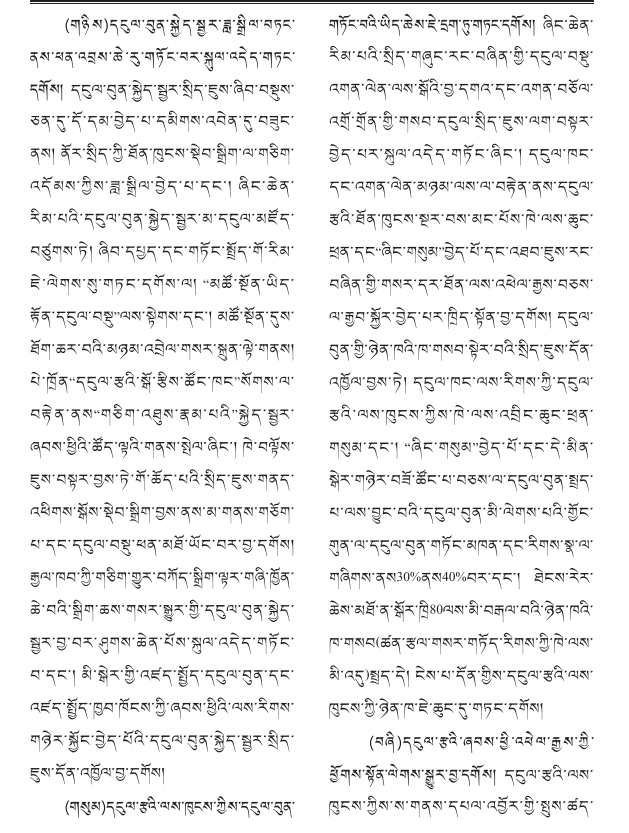 (གཉིས)དངུལ་བུན་སྐྱེད་སྦྱར་ཟླ་སྒྲིལ་བཏང་
ནས་ཕན་འབྲས་ཆེ་རུ་གཏོང་བར་སྐུལ་འདེད་གཏང་
དགོས། དངུལ་བུན་སྐྱེད་སྦྱར་སྲིད་ཇུས་ཞིབ་བསྡུས་
ཅན་དུ་དོ་དམ་བྱེད་པ་དམིགས་འབེན་དུ་བཟུང་
ནས། ནོར་སྲིད་ཀྱི་ཐོན་ཁུངས་སྡེབ་སྒྲིག་ལ་གཅིག་
འདོམས་ཀྱིས་ཟླ་སྒྲིལ་བྱེད་པ་དང་། ཞིང་ཆེན་
རིམ་པའི་དངུལ་བུན་སྐྱེད་སྦྱར་མ་དངུལ་མཛོད་
བཙུགས་ཏེ། ཞིབ་དཔྱད་དང་གཏོང་སྤྲོད་གོ་རིམ་
ཇེ་ལེགས་སུ་གཏང་དགོས་ལ། “མཚོ་སྔོན་ཡིད་
རྟོན་དངུལ་བསྡུ”ལས་སྟེགས་དང་། མཚོ་སྔོན་དུས་
ཐོག་ཆར་བའི་མཉམ་འབྲེལ་གསར་སྐྲུན་ལྟེ་གནས།
པེ་ཁྲོན“དངུལ་རྩའི་སྒོ་རྩིས་ཚོང་ཁང”སོགས་ལ་
བརྟེན་ནས“གཅིག་འཐུས་རྣམ་པའི”སྐྱེད་སྦྱར་
ཞབས་ཕྱིའི་ཚོད་ལྟའི་གནས་སྤེལ་ཞིང་། ཁེ་བལྟོས་
ཇུས་བསྟར་བྱས་ཏེ་གོ་ཆོད་པའི་སྲིད་ཇུས་གནད་
འཕིགས་སྒོས་སྡེབ་སྒྲིག་བྱས་ནས་མ་གནས་གཅོག་
པ་དང་དངུལ་བསྡུ་ཕན་མཐོ་ཡོང་བར་བྱ་དགོས།
རྒྱལ་ཁབ་ཀྱི་གཅིག་གྱུར་བཀོད་སྒྲིག་ལྟར་གཞི་ཁྱོན་
ཆེ་བའི་སྒྲིག་ཆས་གསར་སྒྱུར་གྱི་དངུལ་བུན་སྐྱེད་
སྦྱར་བྱ་བར་ཤུགས་ཆེན་པོས་སྐུལ་འདེད་གཏོང་
བ་དང་། མི་སྒེར་གྱི་འཛད་སྤྱོད་དངུལ་བུན་དང་
འཛད་སྤྱོད་ཁྱབ་ཁོངས་ཀྱི་ཞབས་ཕྱིའི་ལས་རིགས་
གཉེར་སྐྱོང་བྱེད་པོའི་དངུལ་བུན་སྐྱེད་སྦྱར་སྲིད་
ཇུས་དོན་འཁྱོལ་བྱ་དགོས།
(གསུམ)དངུལ་རྩའི་ལས་ཁུངས་ཀྱིས་དངུལ་བུན་
གཏོང་བའི་ཡིད་ཆེས་ཇེ་དྲག་ཏུ་གཏང་དགོས། ཞིང་ཆེན་
རིམ་པའི་སྲིད་གཞུང་རང་བཞིན་གྱི་དངུལ་བསྡུ་
འགན་ལེན་ལས་སྒོའི་བྱ་དགའ་དང་འགན་བཅོལ་
འགྲོ་གྲོན་གྱི་གསབ་དངུལ་སྲིད་ཇུས་ལག་བསྟར་
བྱེད་པར་སྐུལ་འདེད་གཏོང་ཞིང་། དངུལ་ཁང་
དང་འགན་ལེན་མཉམ་ལས་ལ་བརྟེན་ནས་དངུལ་
རྩའི་ཐོན་ཁུངས་སྔར་བས་མང་པོས་ཁེ་ལས་ཆུང་
ཕྲན་དང“ཞིང་གསུམ”བྱེད་པོ་དང་འཐབ་ཇུས་རང་
བཞིན་གྱི་གསར་དར་ཐོན་ལས་འཕེལ་རྒྱས་བཅས་
ལ་རྒྱབ་སྐྱོར་བྱེད་པར་ཁྲིད་སྟོན་བྱ་དགོས། དངུལ་
བུན་གྱི་ཉེན་ཁའི་ཁ་གསབ་སྟེར་བའི་སྲིད་ཇུས་དོན་
འཁྱོལ་བྱས་ཏེ། དངུལ་ཁང་ལས་རིགས་ཀྱི་དངུལ་
རྩའི་ལས་ཁུངས་ཀྱིས་ཁེ་ལས་འབྲིང་ཆུང་ཕྲན་
གསུམ་དང་། “ཞིང་གསུམ”བྱེད་པོ་དང་དེ་མིན་
སྒེར་གཉེར་བཟོ་ཚོང་པ་བཅས་ལ་དངུལ་བུན་སྤྲད་
པ་ལས་བྱུང་བའི་དངུལ་བུན་མི་ལེགས་པའི་གྱོང་
གུན་ལ་དངུལ་བུན་གཏོང་མཁན་དང་རིགས་སྣ་ལ་
གཞིགས་ནས30%ནས40%བར་དང་། ཐེངས་རེར་
ཆེས་མཐོ་ན་སྒོར་ཁྲི80ལས་མི་བརྒལ་བའི་ཉེན་ཁའི་
ཁ་གསབ(ཚན་རྩལ་གསར་གཏོད་རིགས་ཀྱི་ཁེ་ལས་
མི་འདུ)སྤྲད་དེ། ངེས་པ་དོན་གྱིས་དངུལ་རྩའི་ལས་
ཁུངས་ཀྱི་ཉེན་ཁ་ཇེ་ཆུང་དུ་གཏང་དགོས།
(བཞི)དངུལ་རྩའི་ཞབས་ཕྱི་འཕེལ་རྒྱས་ཀྱི་
ཕྱོགས་སྟོན་ལེགས་སྒྱུར་བྱ་དགོས། དངུལ་རྩའི་ལས་
ཁུངས་ཀྱིས་ས་གནས་དཔལ་འབྱོར་གྱི་སྤུས་ཚད་